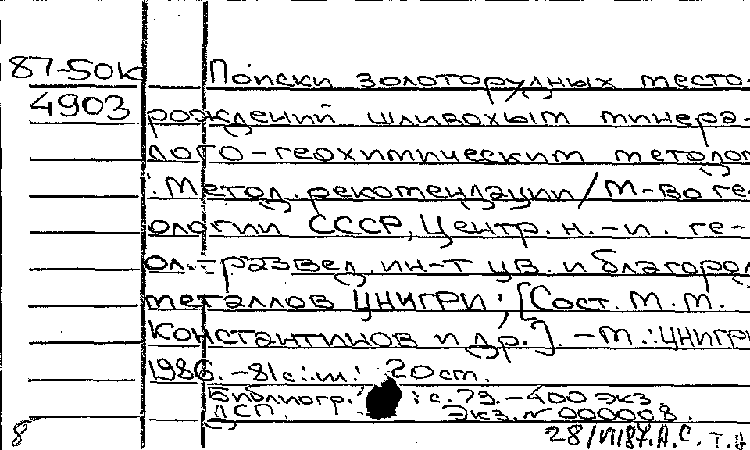 87-50к Поиски золоторудных место-
4903 рождений шлихохым минера-
лого-геохимическим методом
: Метод. рекомендации/М-во ге-
ологии СССР, Центр. н.-и. ге-
ол.-развед. ин-т цв. и благород.
металлов ЦНИГРИ; [Сост. М. М.
Константинов и др.]. - М.: ЦНИГРИ
1986. - 81 с.: ил.: 20 см.
Библиогр.: с. 79. - 400 экз.
ДСП. Экз. № 000008.
8 28/VII87. А.С.